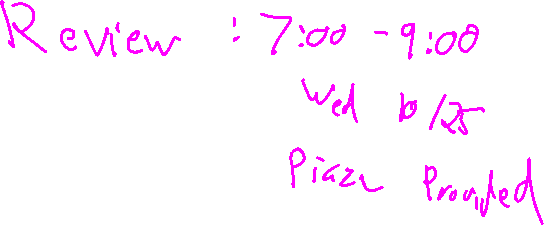 Review : 7:00 - 9:00
Wed 10/25
Pizza Provided